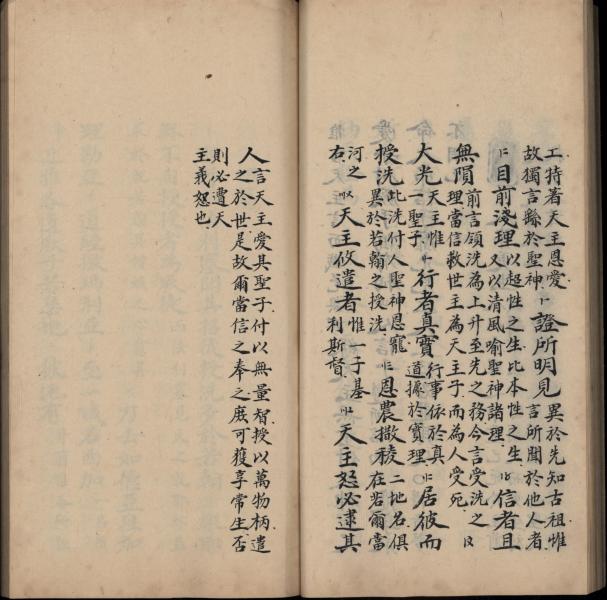 工特著天主恩愛
故獨言縣於聖神
證所明見
異於先知古祖惟
言所聞於他人者
目前淺理
以超性之生比本性之生
又以清風喻聖神諸理
信者且
無隕
前言領洗為上升至先之務今言受洗之
理當信救世主為天主子而為人受死
大光
天主惟
一聖子
行者真實
行事依於真
道據於實理
居彼而
授洗
此洗付人聖神恩寵
異於若翰之授洗
恩農撒稜
二地名俱
在若爾當
河之
右
天主攸遣者
惟一子基
利斯督
天主怒必逮其
人
言天主愛其聖子付以無量智授以萬物柄遣
之於世是故爾當信之奉之庶可獲享常生否
則必遭天
主義怒也